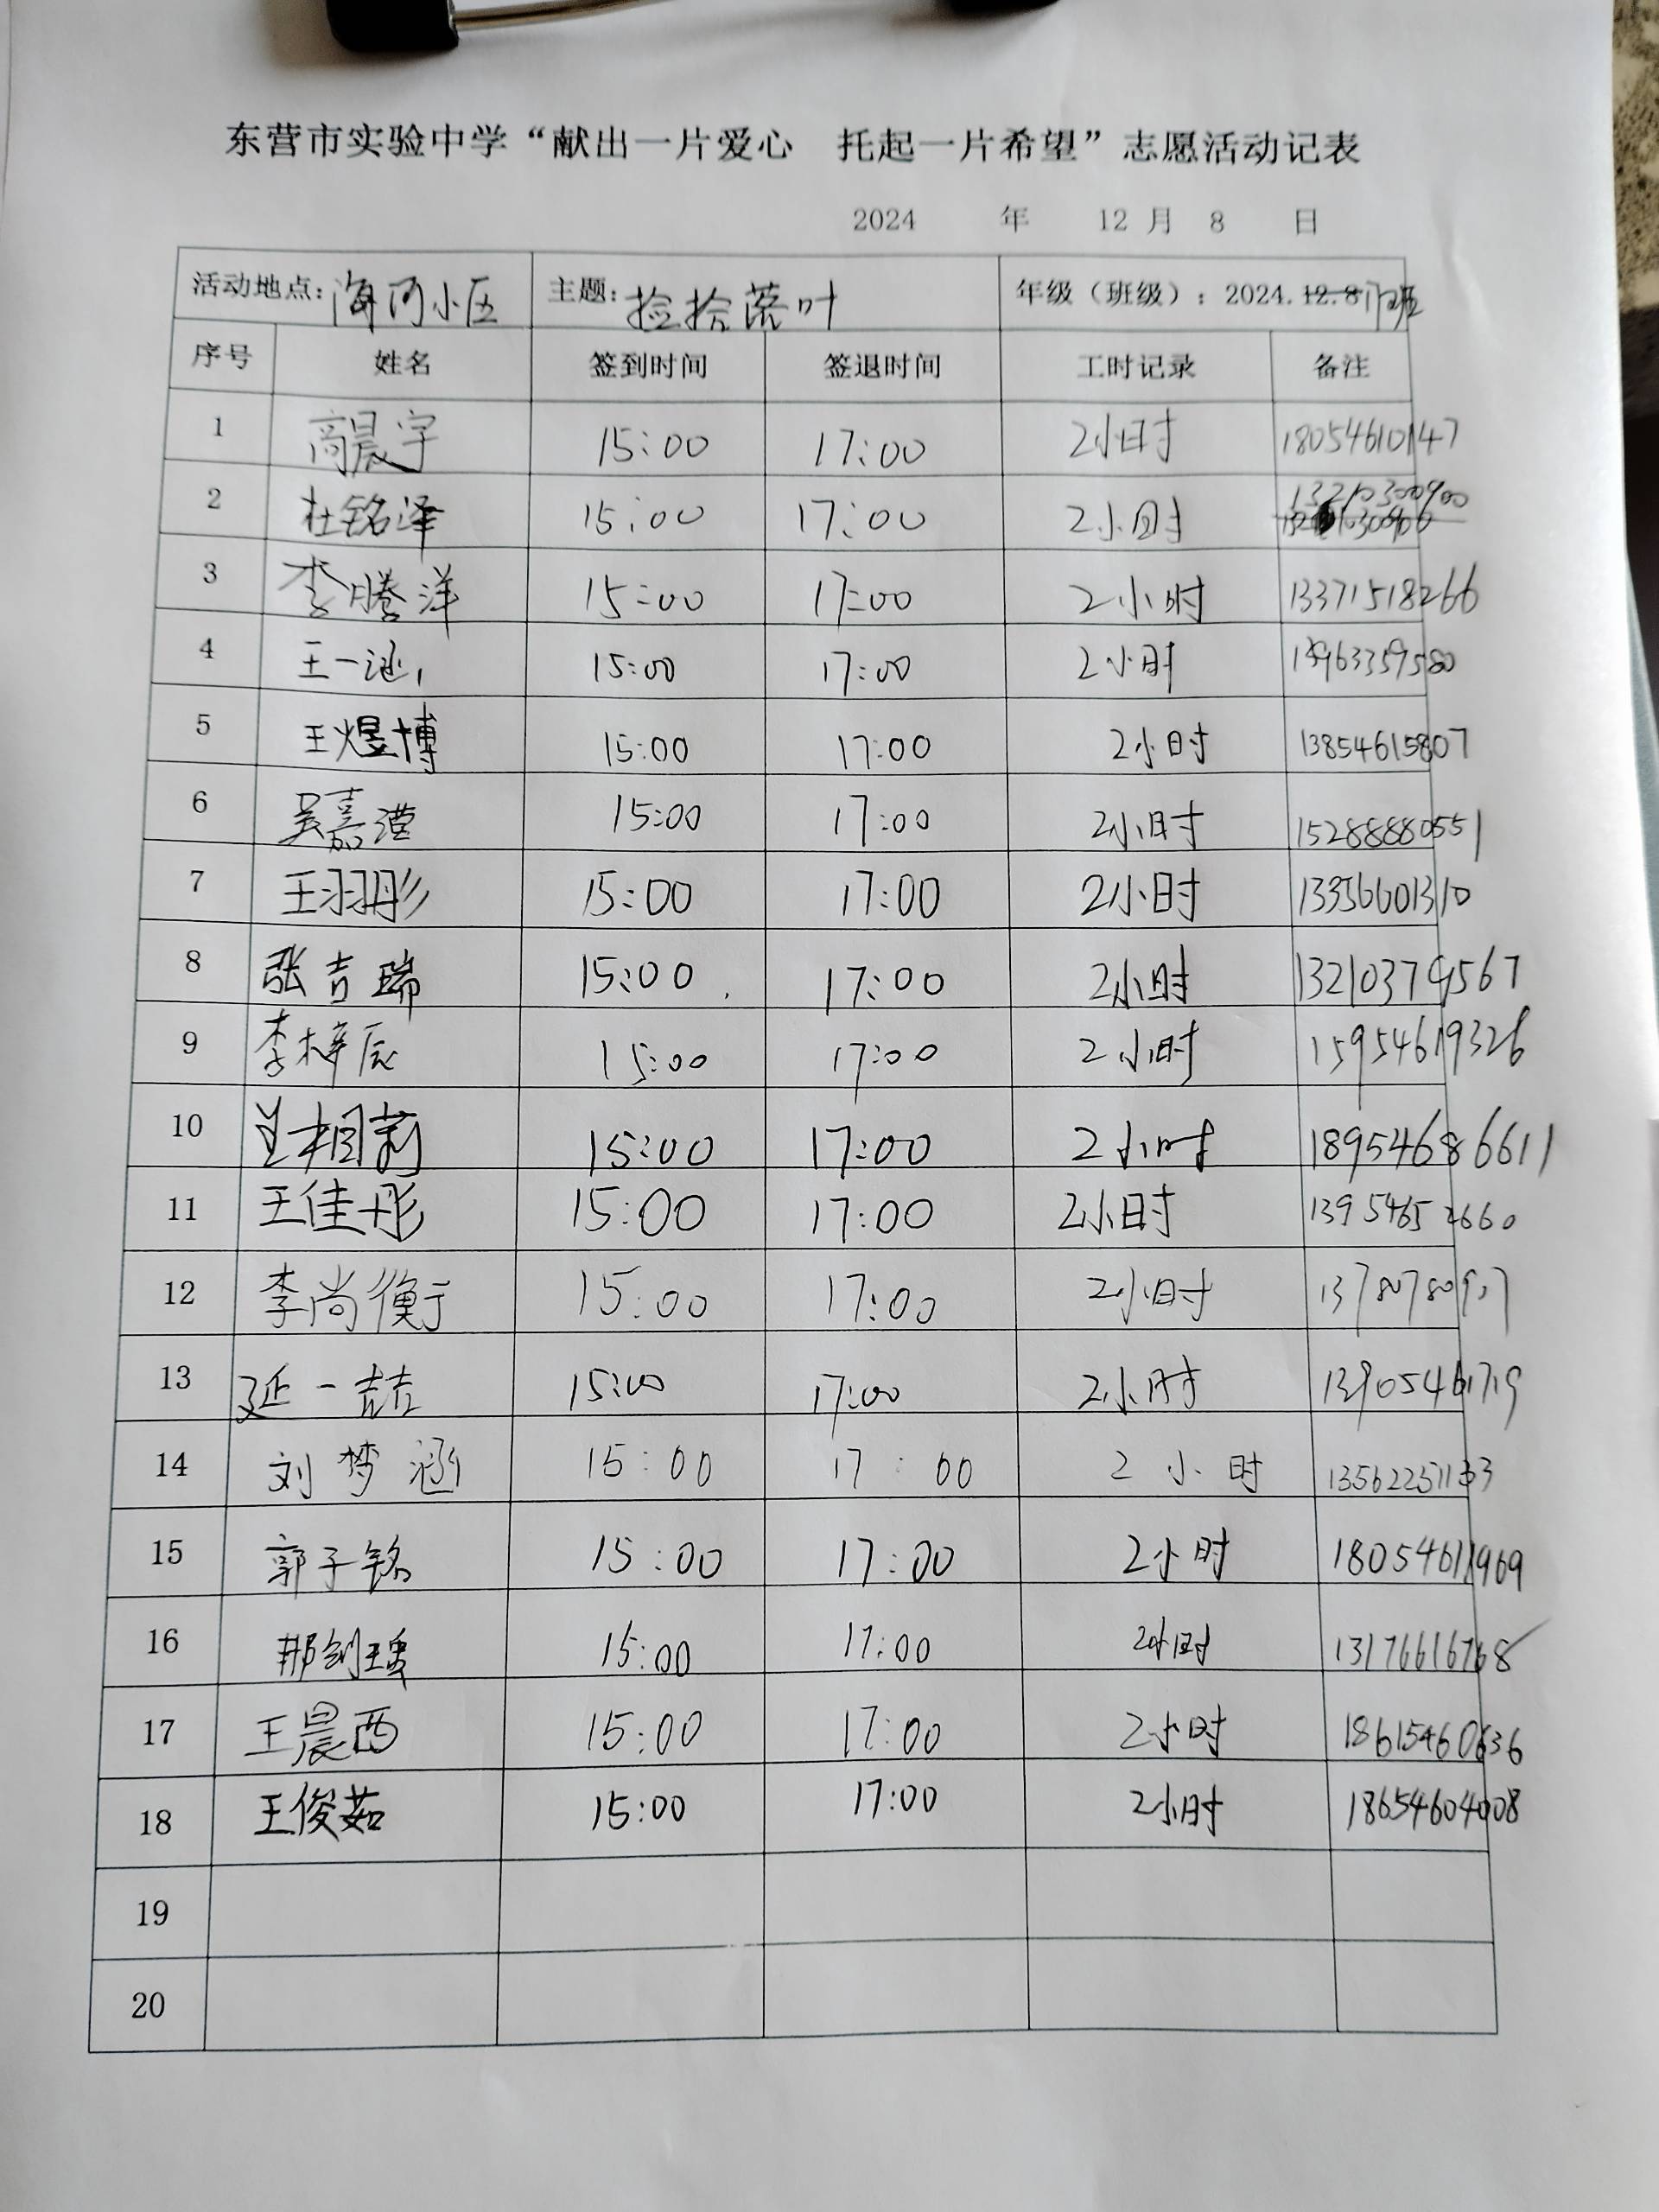 东营市实验中学“献出一片爱心 托起一片希望”志愿活动记表
2024 年 12 月 8 日
活动地点：海河小区 主题：捡拾落叶 年级（班级）：2024.12.8 17班
序号 姓名 签到时间 签退时间 工时记录 备注
1 商晨宇 15:00 17:00 2小时 18054610147
2 杜铭泽 15:00 17:00 2小时 13210300900
3 李腾洋 15:00 17:00 2小时 13371518266
4 王一涵 15:00 17:00 2小时
5 王煜博 15:00 17:00 2小时 13854615807
6 吴嘉滢 15:00 17:00 2小时 15288880551
7 王羽彤 15:00 17:00 2小时 13356601310
8 张吉瑞 15:00 17:00 2小时
9 李梓辰 15:00 17:00 2小时 15954619326
10 15:00 17:00 2小时 18954686611
11 王佳彤 15:00 17:00 2小时 13954652660
12 李尚衡 15:00 17:00 2小时
13 延一喆 15:00 17:00 2小时
14 刘梦涵 15:00 17:00 2小时 13562251133
15 郭子铭 15:00 17:00 2小时 18054611969
16 15:00 17:00 2小时 13176616768
17 王晨西 15:00 17:00 2小时 18615460636
18 王俊茹 15:00 17:00 2小时 18654604008
19
20